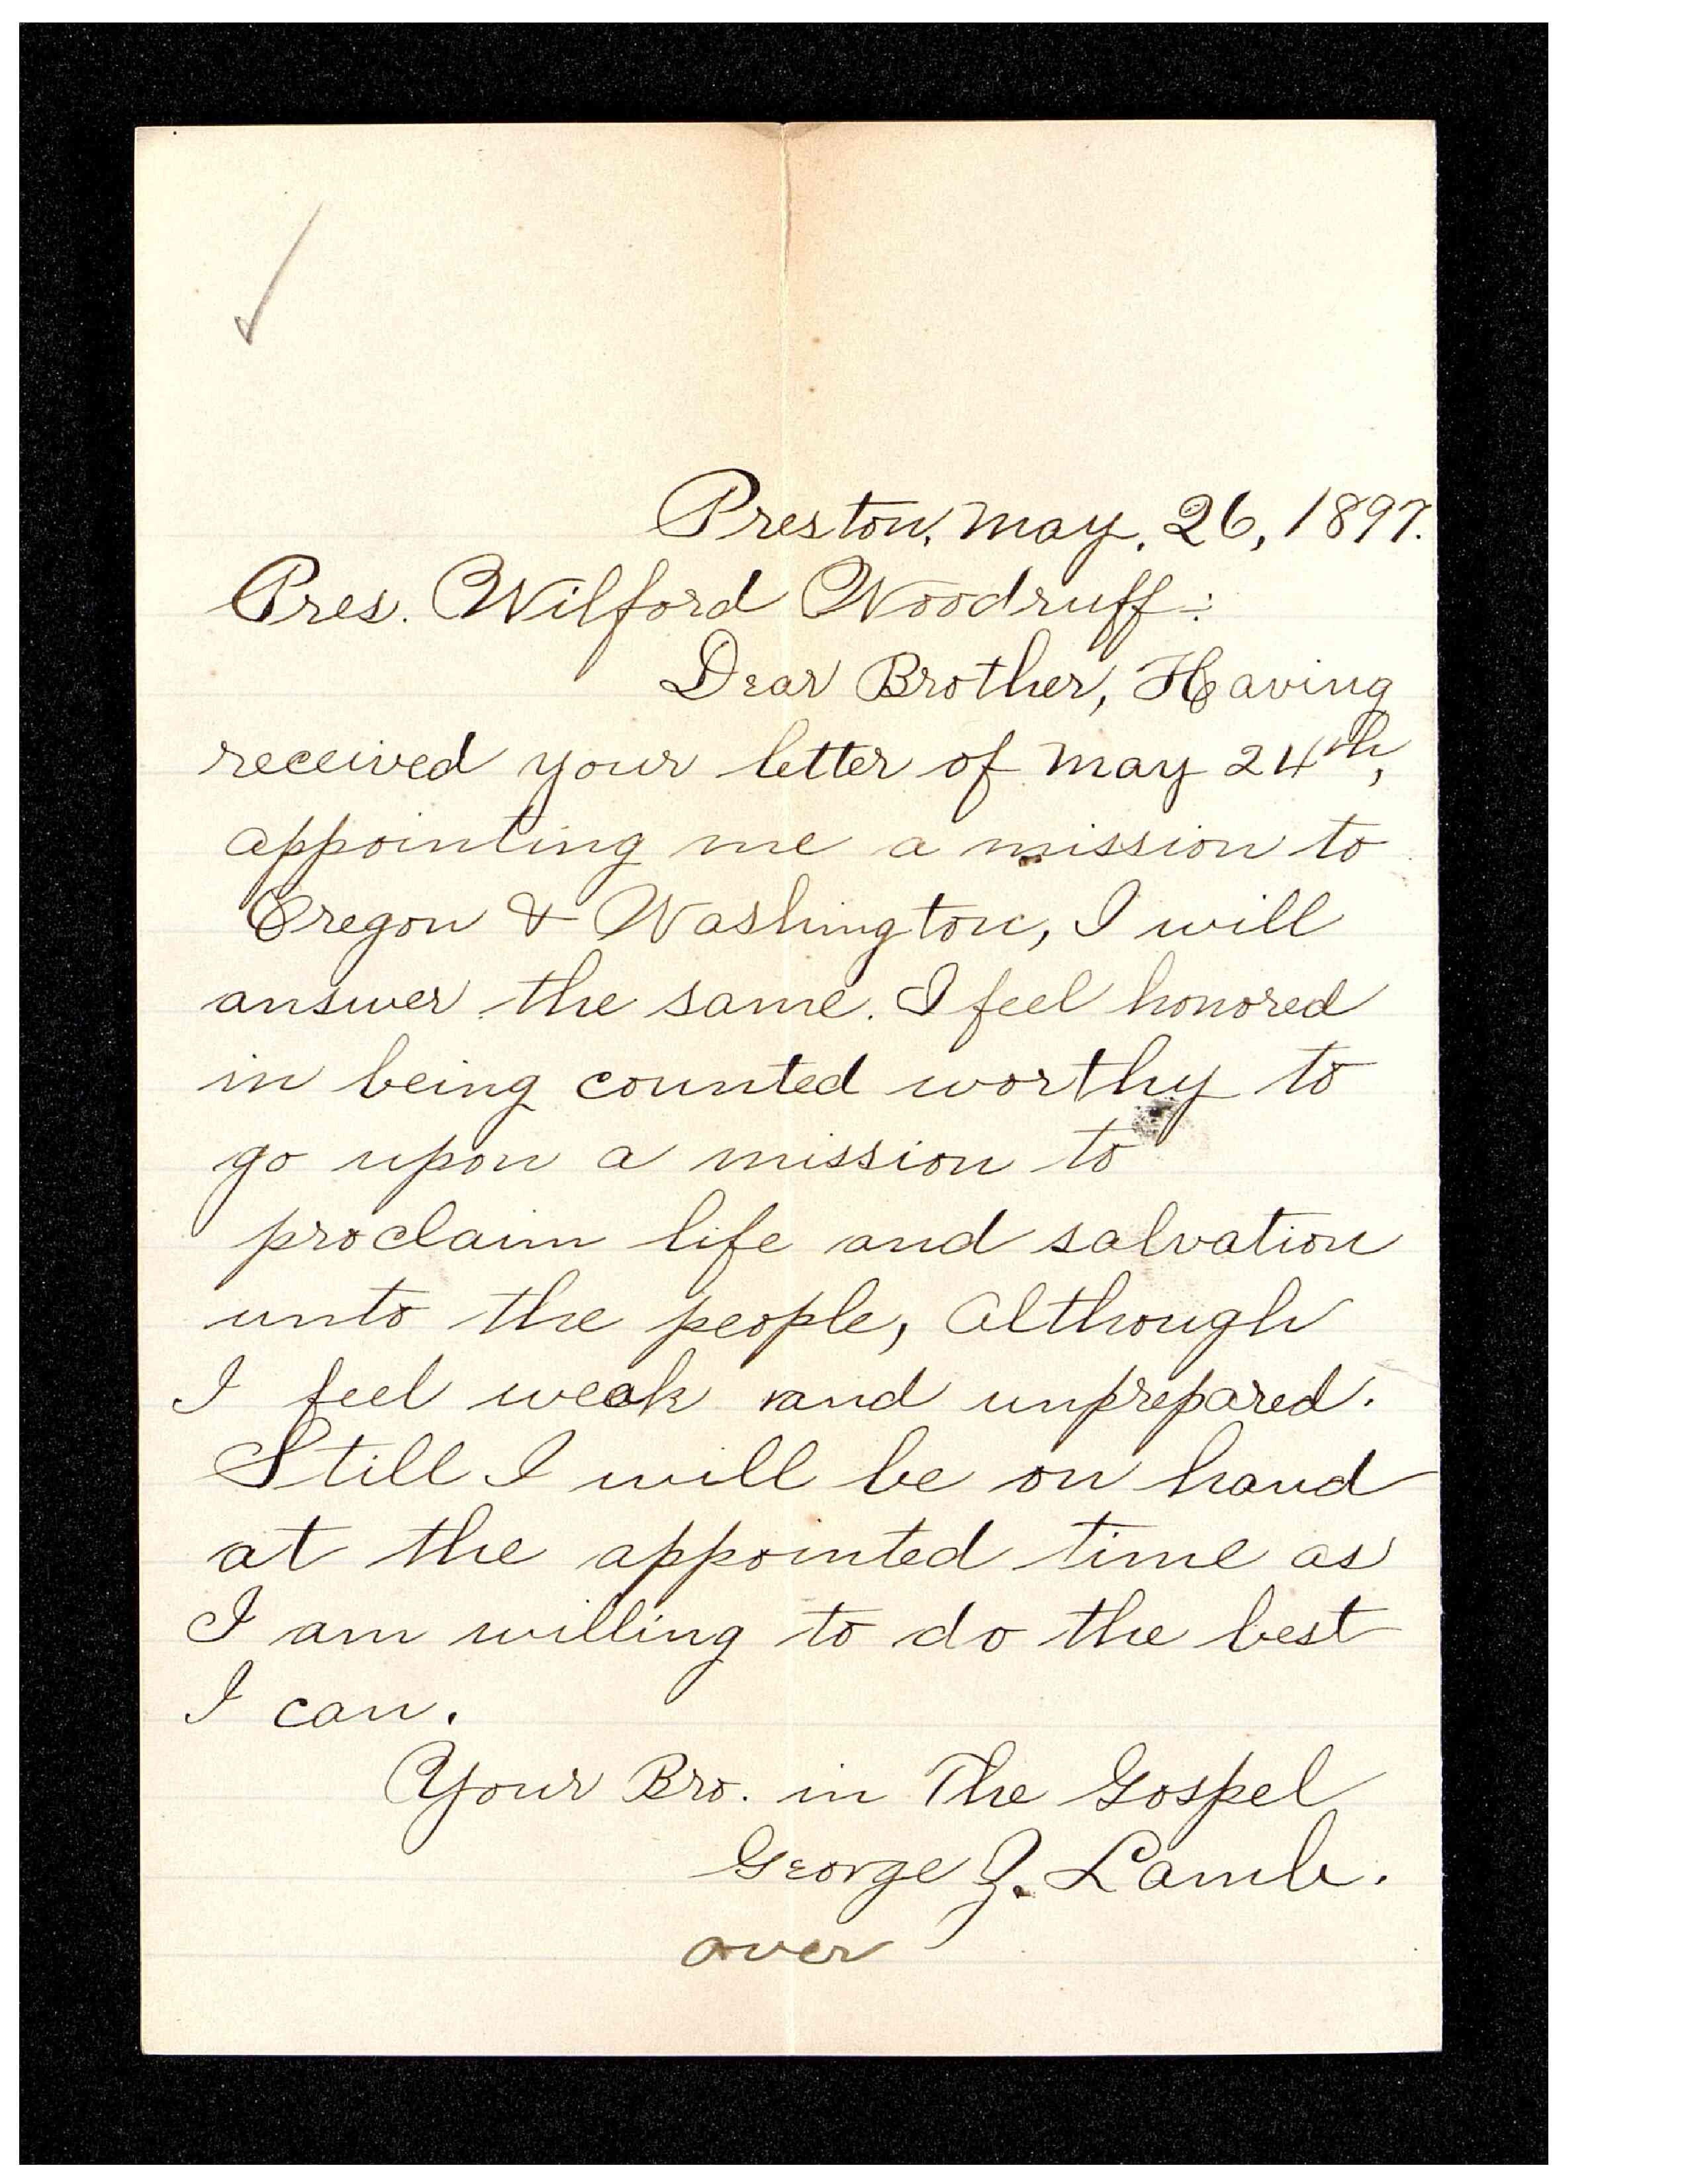 Preston, May. 26, 1897.
Pres. Wilford Woodruff:
Dear Brother, Having
received your letter of May 24th,
appointing me a mission to
Oregon & Washington, I will
answer the same. I feel honored
in being counted worthy to
go upon a mission to
proclaim life and salvation
unto the people, Although
I feel weak and unprepared.
Still I will be on hand
at the appointed time as
I am willing to do the best
I can.
Your Bro. in The Gospel
George Z. Lamb.
over